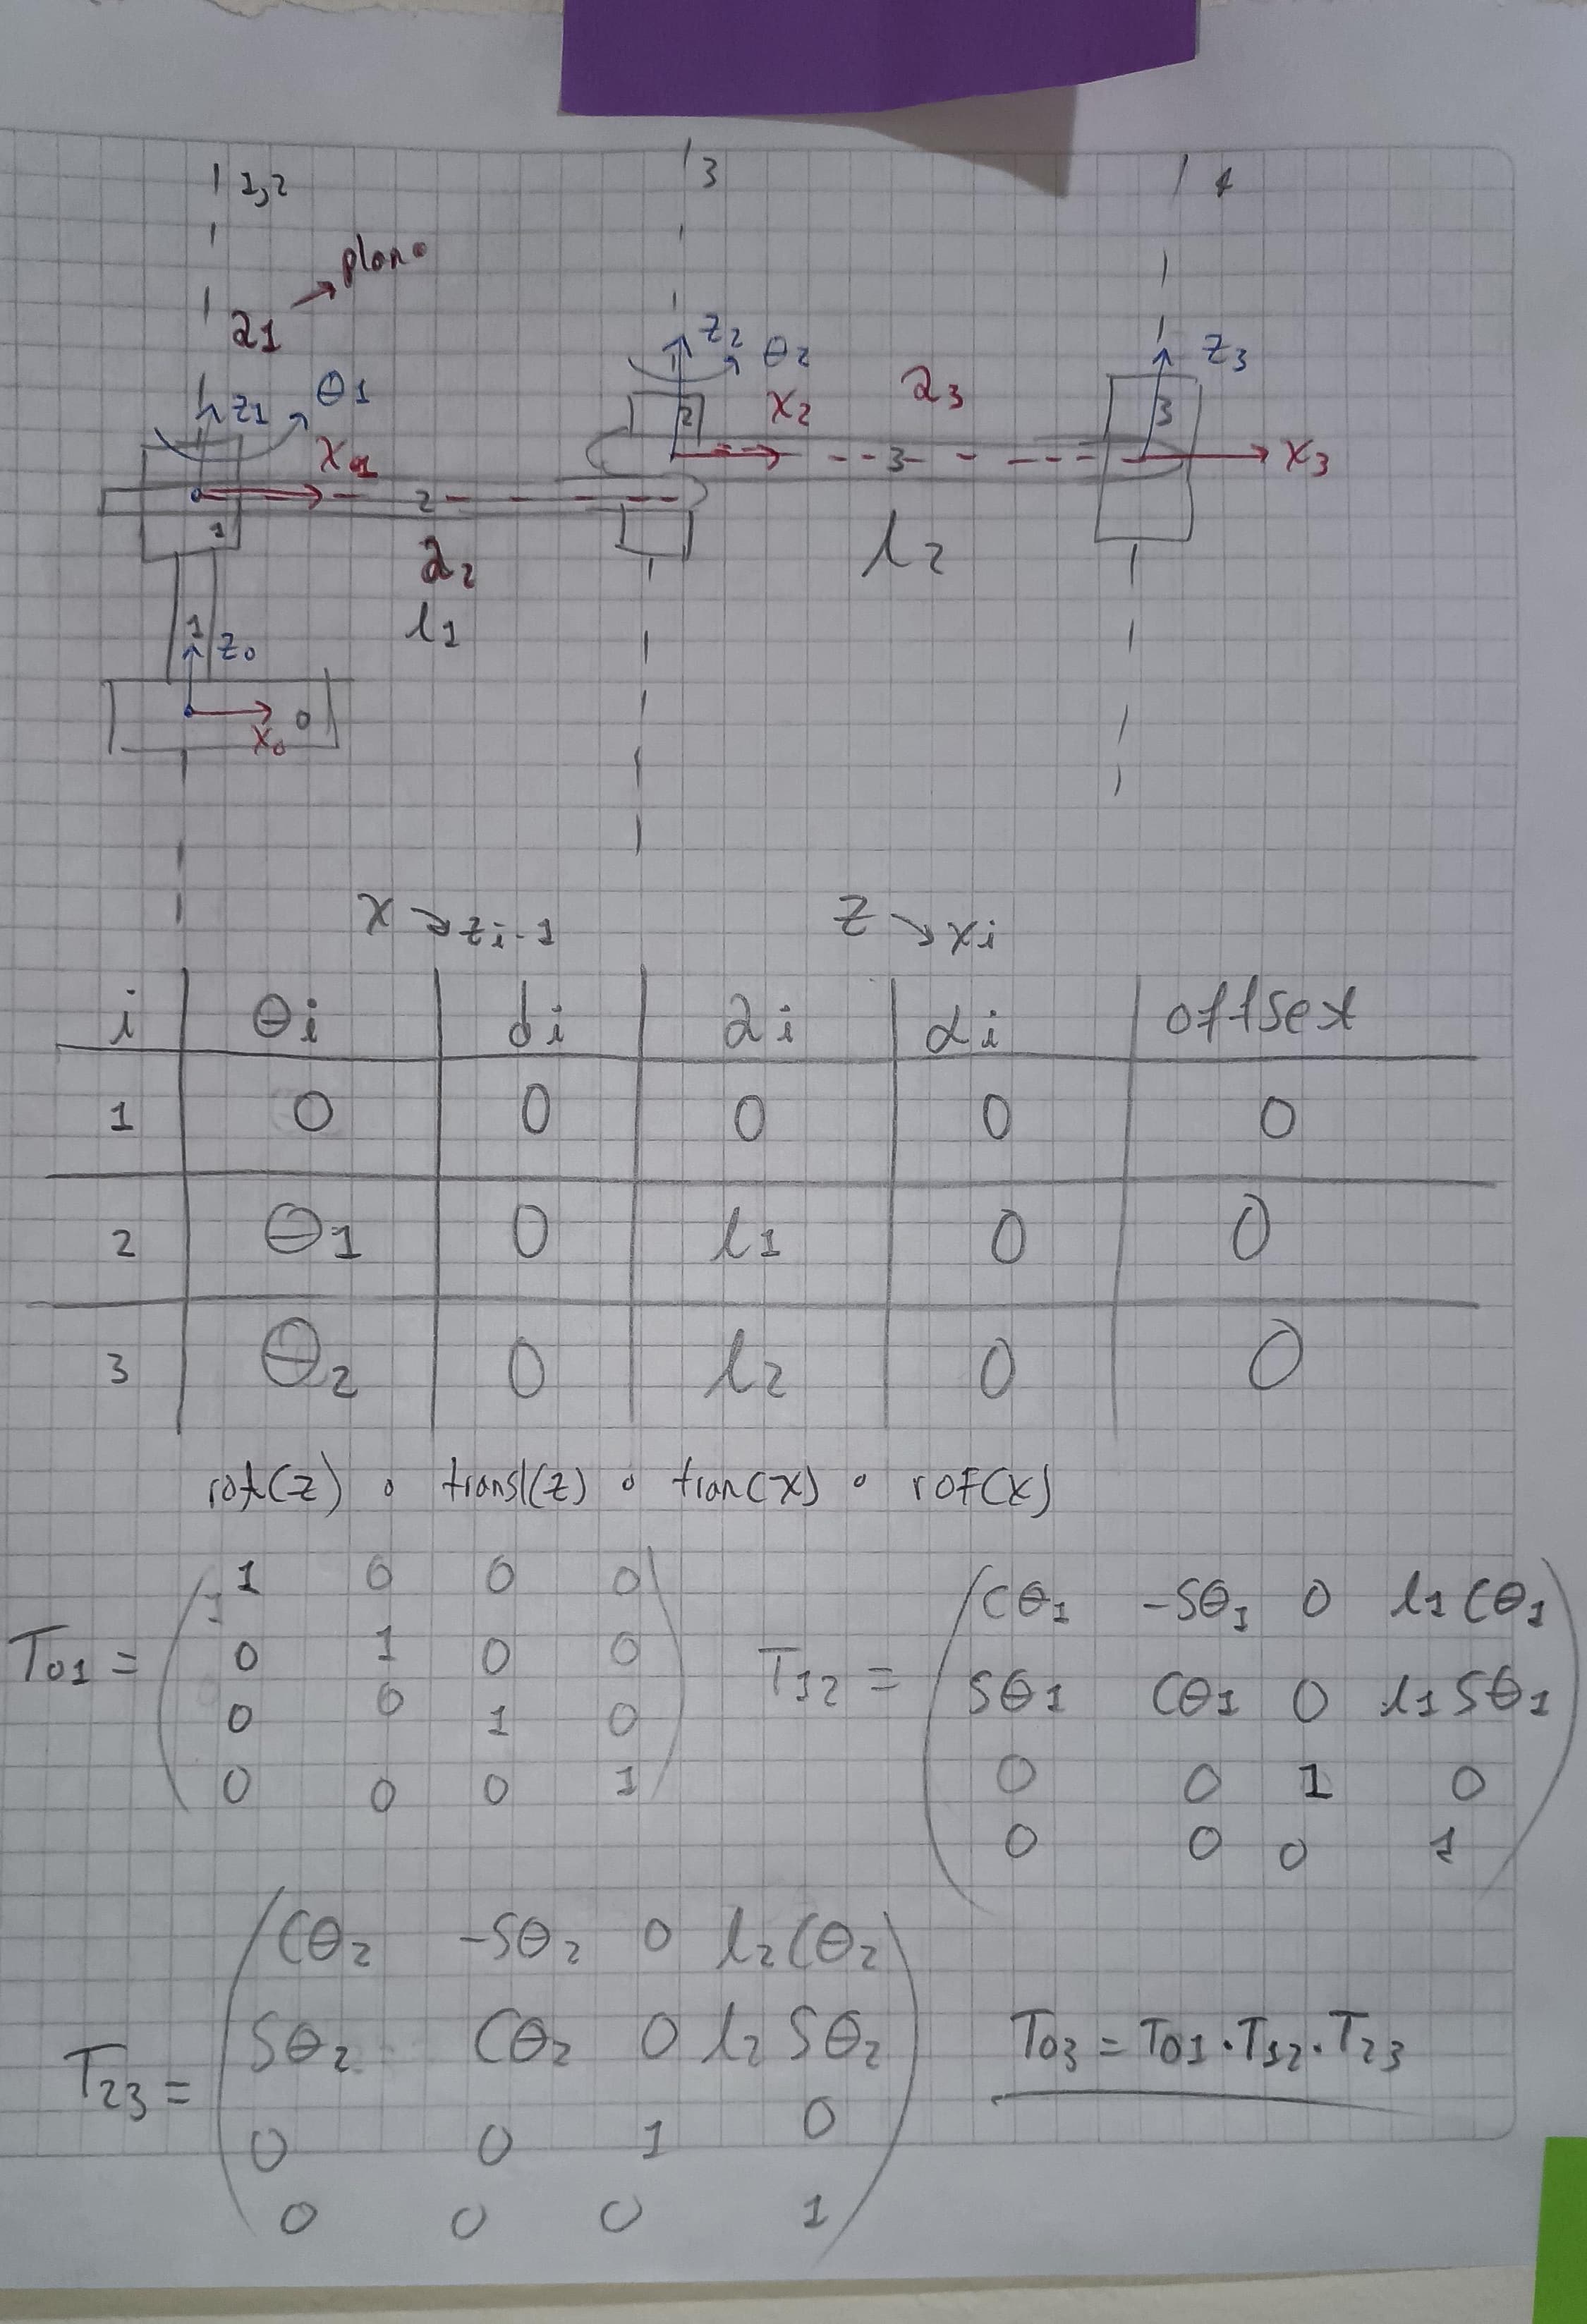 1,2 3 4
a1 → plano
z1 θ1 x1 z2 θ2 x2 a3 z3
2 2 3 3 x3
1 a2 l2
l1
1 z0
x0 0
x → zi-1 z → xi
i θi di ai αi offset
1 0 0 0 0 0
2 θ1 0 l1 0 0
3 θ2 0 l2 0 0
rot(z) ∘ transl(z) ∘ tran(x) ∘ rot(x)
T01 =
1 0 0 0
0 1 0 0
0 0 1 0
0 0 0 1
T12 =
Cθ1 -Sθ1 0 l1 Cθ1
Sθ1 Cθ1 0 l1 Sθ1
0 0 1 0
0 0 0 1
T23 =
Cθ2 -Sθ2 0 l2 Cθ2
Sθ2 Cθ2 0 l2 Sθ2
0 0 1 0
0 0 0 1
T03 = T01 · T12 · T23